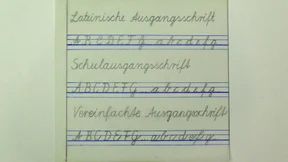 Lateinische Ausgangsschrift
A B C D E F G a b c d e f g
Schulausgangsschrift
A B C D E F G a b c d e f g
Vereinfachte Ausgangsschrift
A B C D E F G a b c d e f g